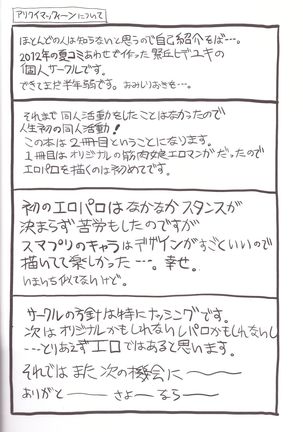 アリクイマックィーンについて
ほとんどの人は知らないと思うので自己紹介をば…。
2012年の夏コミあわせで作った祭丘ヒデユキの
個人サークルです。
できてまだ半年弱です。おみしりおきを…。
それまで同人活動をしたことはなかったので
人生初の同人活動！
この本は2冊目ということになります。
1冊目はオリジナルの筋肉娘エロマンガだったので
エロパロを描くのは初めてです。
初のエロパロはなかなかスタンスが
決まらず苦労もしたのですが
スマプリのキャラはデザインがすごくいいので
描いてて楽しかった…。幸せ。
いまいち似てないけど。
サークルの方針は特にナッシングです。
次はオリジナルかもしれないしパロかもしれないし
…とりあえずエロではあると思います。
それではまた次の機会に〜
ありがと――さよ―なら――